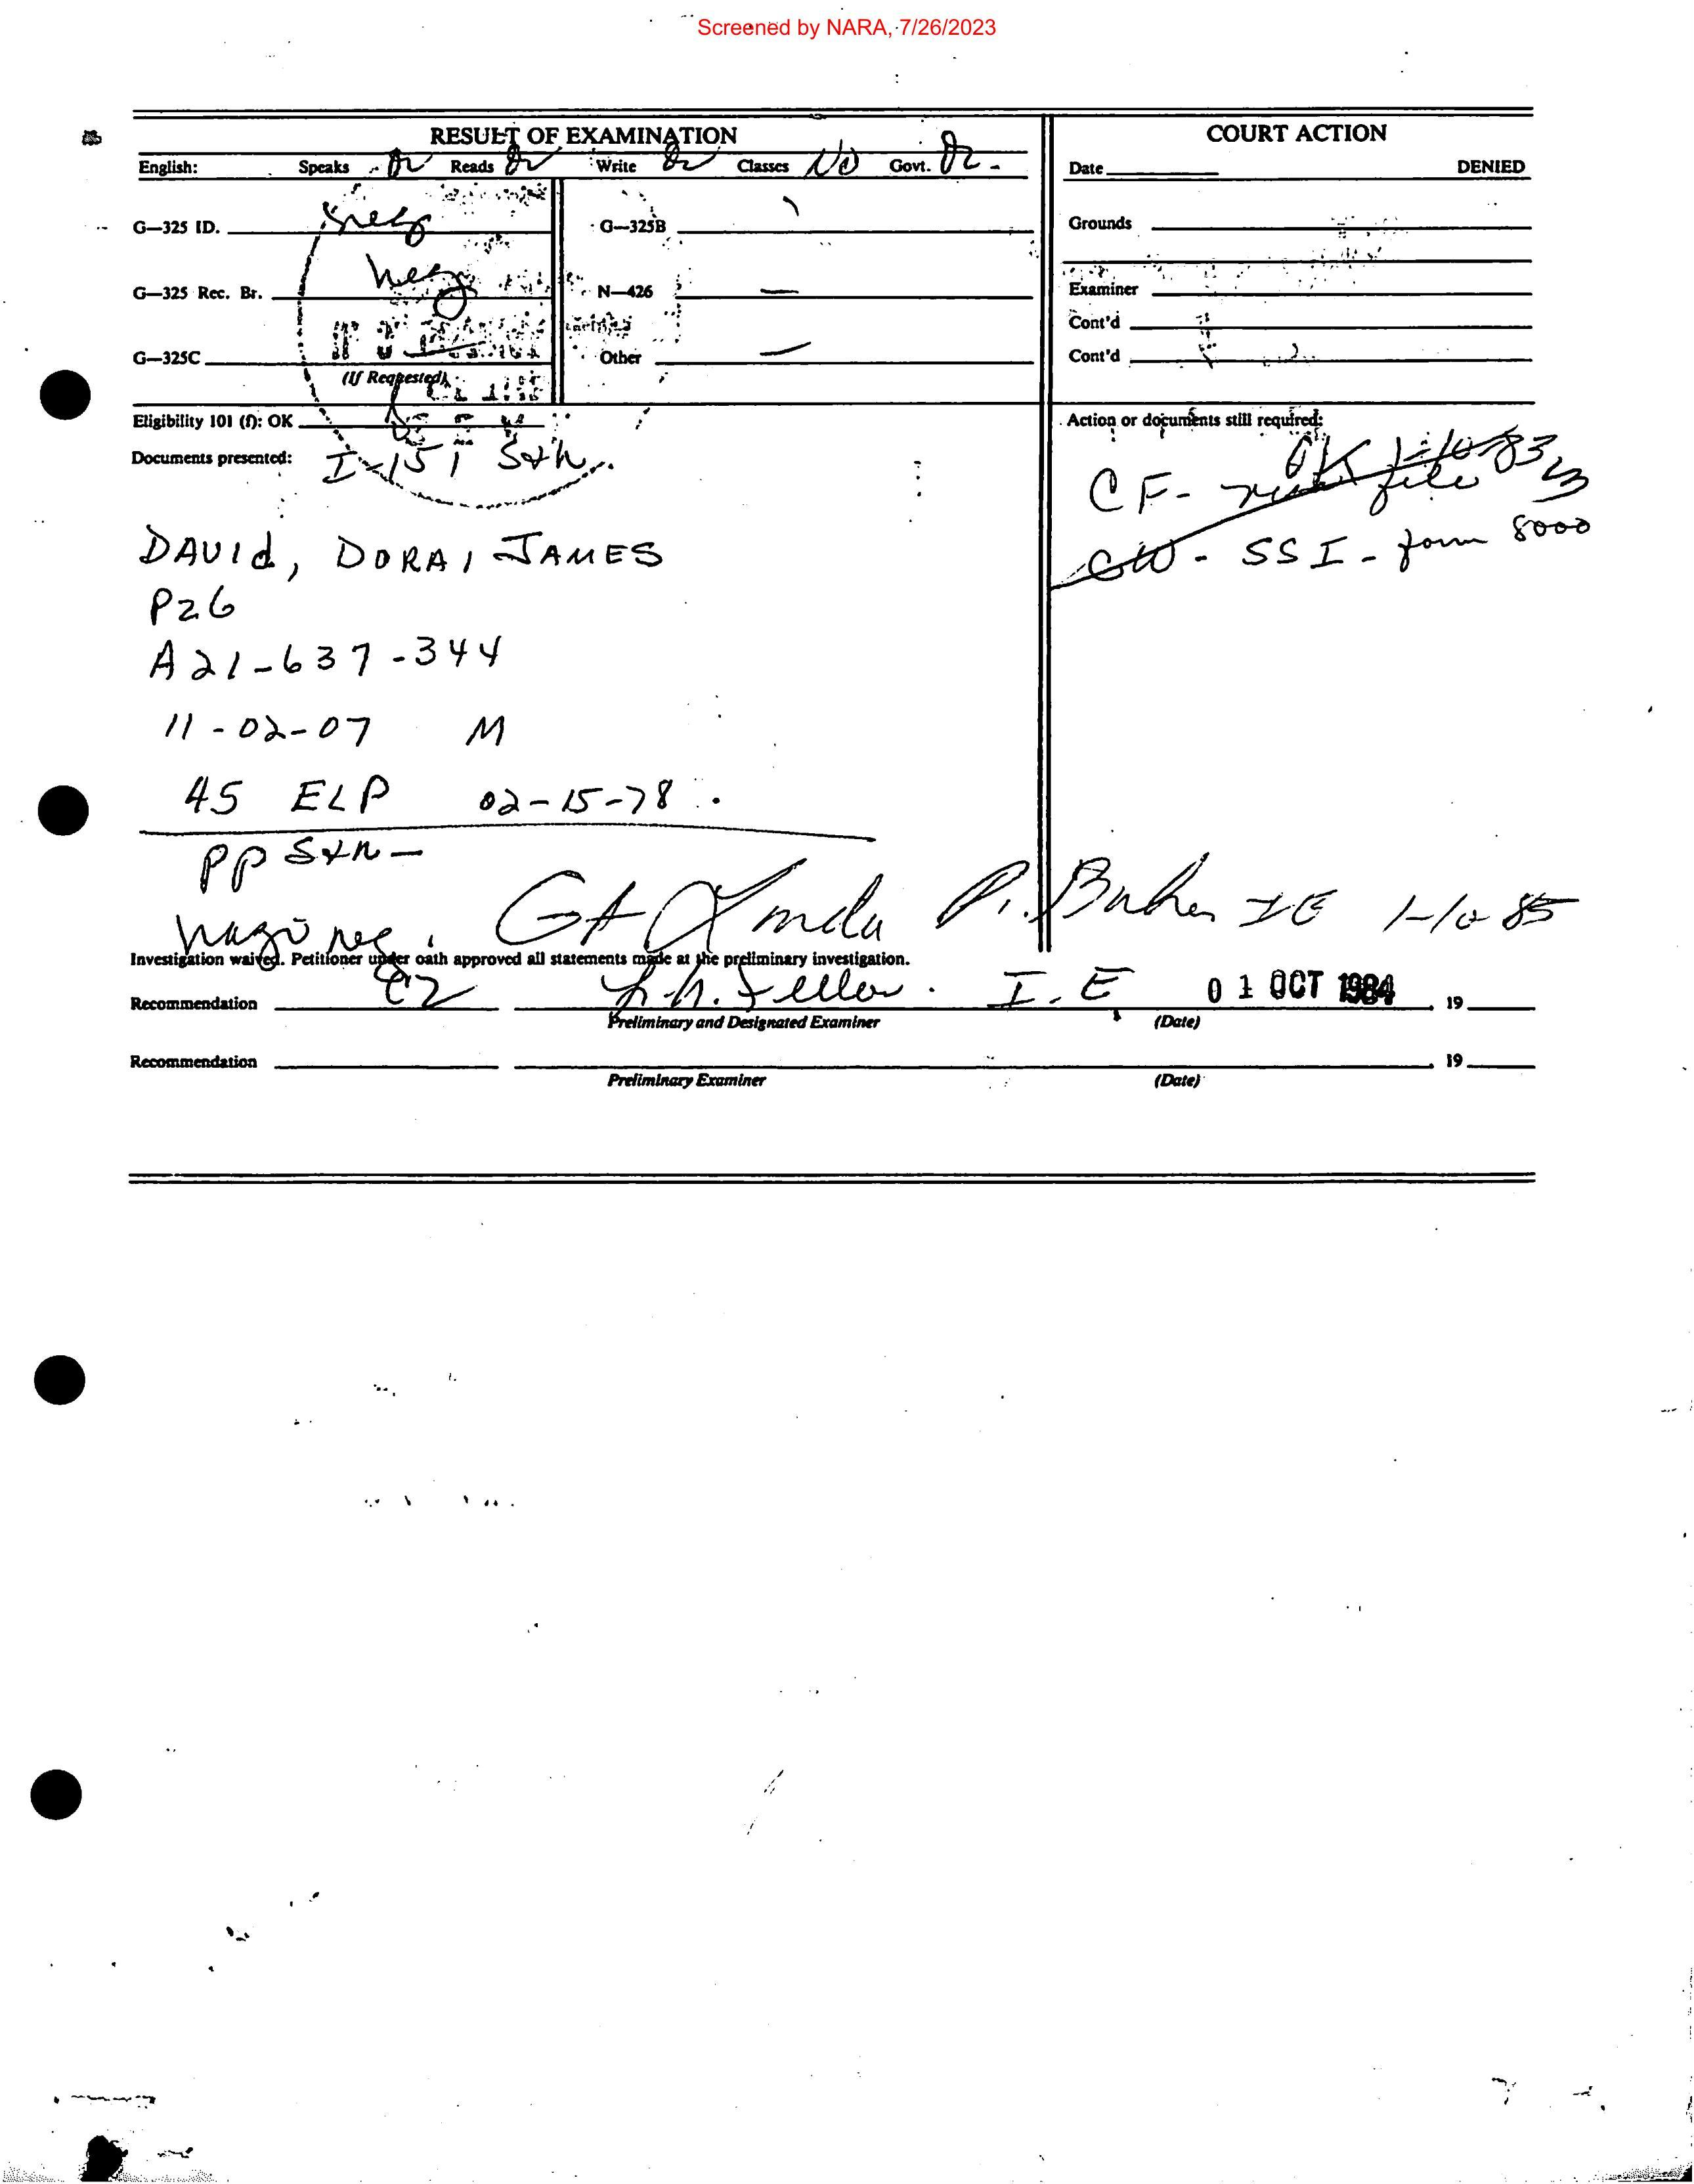 Screened by NARA, 7/26/2023
RESULT OF EXAMINATION
English: Speaks Reads Write Classes NO Govt.
G-325 ID. neg G-325B
G-325 Rec. Br. neg N-426 —
G-325C — Other —
(If Requested)
Eligibility 101 (f): OK
Documents presented: I-151 S&N
DAVId, DORAI JAMES
P26
A21-637-344
11-02-07 M
45 ELP 02-15-78
PP S&N -
neg.
COURT ACTION
Date DENIED
Grounds
Examiner
Cont'd
Cont'd
Action or documents still required:
OK
CF- file
- SSI - form 8000
Linda P. IE 1-10-85
Investigation waived. Petitioner under oath approved all statements made at the preliminary investigation.
Recommendation I.E 01 OCT 1984 , 19
Preliminary and Designated Examiner (Date)
Recommendation , 19
Preliminary Examiner (Date)